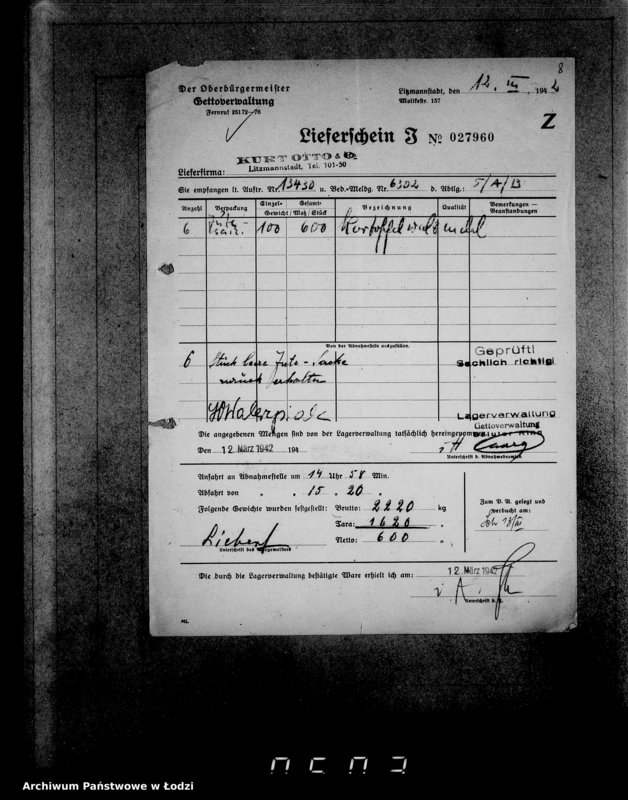 8
Der Oberbürgermeister
Gettoverwaltung
Fernruf 25172—76
Litzmannstadt, den 12. III. 1942
Moltkestr. 157
Z
Lieferschein J № 027960
Lieferfirma: KURT OTTO & Co.
Litzmannstadt, Tel. 101-50
Sie empfangen lt. Auftr. Nr. 13430 u. Bed.-Meldg. Nr. 6302 d. Abtlg.: 5/A/B
Anzahl Verpackung Einzel- Gesamt- Bezeichnung Qualität Bemerkungen —
Gewicht / Maß / Stück Beanstandungen
6 100 600 Kartoffelwalzmehl
Von der Abnahmestelle auszufüllen.
6 Stück leere Jute-Säcke
zurück erhalten
Geprüft!
Sachlich richtig!
Lagerverwaltung
Gettoverwaltung
Die angegebenen Mengen sind von der Lagerverwaltung tatsächlich hereingenommen
Den 12. März 1942 194
Unterschrift d. Abnahmebeamten
Anfahrt an Abnahmestelle um 14 Uhr 58 Min.
Abfahrt von „ „ 15 „ 20 „
Folgende Gewichte wurden festgestellt: Brutto: 2220 kg
Tara: 1620 „
Netto: 600 „
Zum V. A. gelegt und
verbucht am:
13/III
Liebert
Unterschrift des Wiegemeisters
Die durch die Lagerverwaltung bestätigte Ware erhielt ich am: 12. März 1942
Unterschrift
Archiwum Państwowe w Łodzi